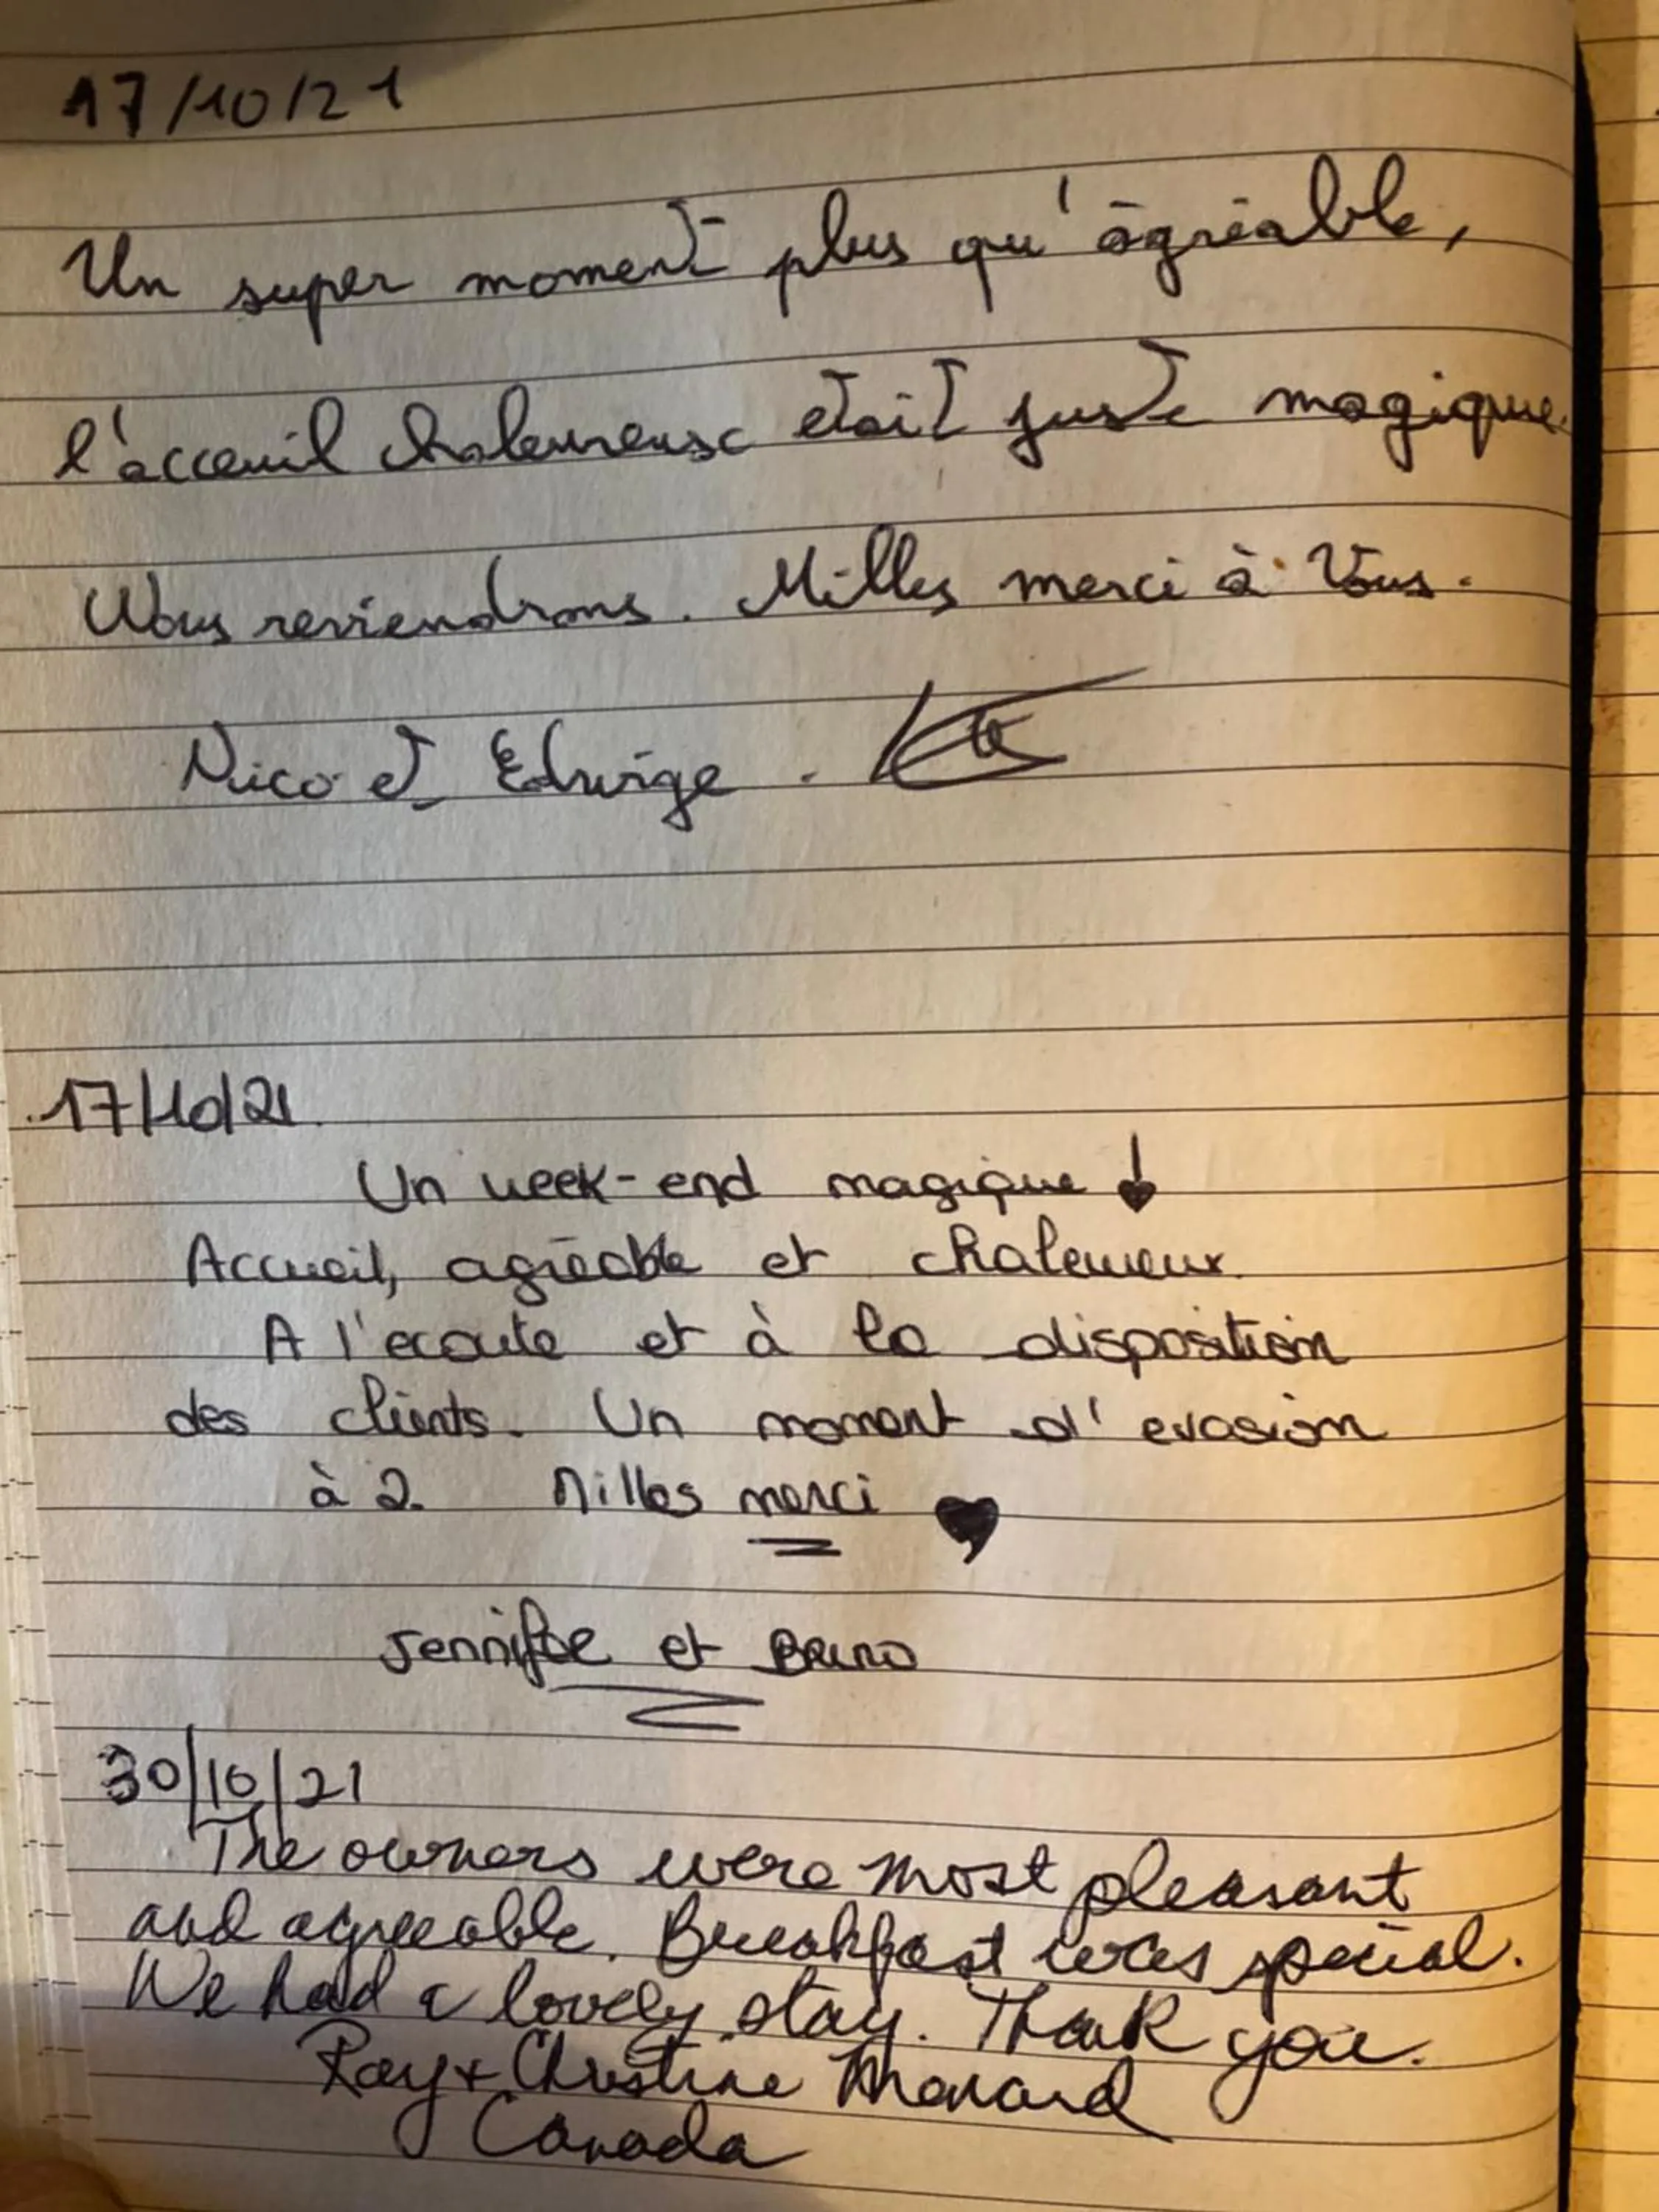 17/10/21
Un super moment plus qu'agréable,
l'acceuil chaleureuse etait juste magique.
Nous reviendrons. Milles merci à Vous.
Nico et Edwige.
17/10/21.
Un week-end magique !
Accueil, agréable et chaleureux.
A l'ecoute et à la disposition
des clients. Un moment d'evasion
à 2. Milles merci
Jennifer et Bruno
30/10/21
The owners were most pleasant
and agreeable. Breakfast was special.
We had a lovely stay. Thank you.
Ray + Christine Menard
Canada